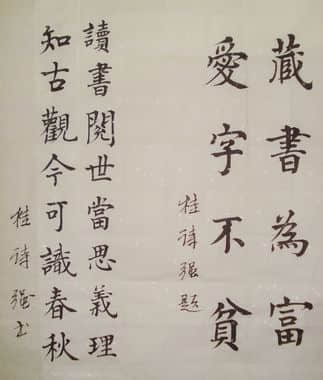 藏書為富
愛字不貧
桂詩強題
讀書閱世當思義理
知古觀今可識春秋
桂詩強書